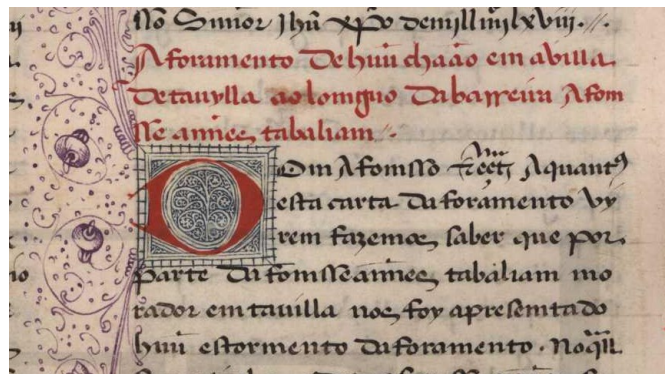 sso Senhor Jhũ xp̃o de mill iiij lxviii.
Aforamento De huũ chaão em a villa
De tavylla ao longuo Da barreira Afom
sse annes tabaliam
Dom Afonsso &c̃ Aquantos
esta carta Da foramento vy
rem fazemos saber que por
parte Dafomsseannes tabaliam mo
rador em tavilla nos foy apresemtado
huũ estormento Daforamento . No qll